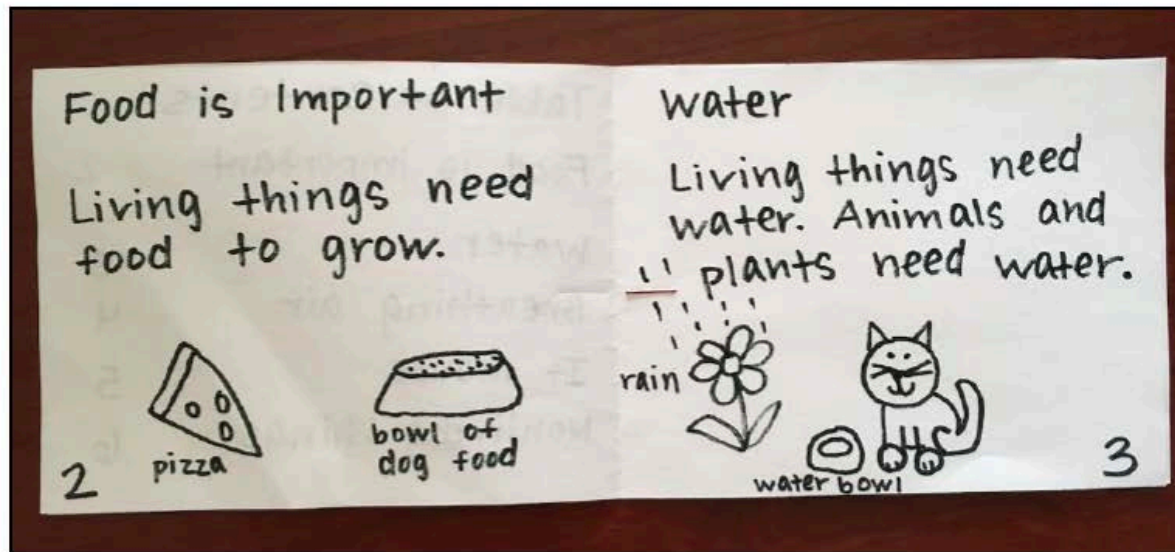 Food is Important
Living things need
food to grow.
pizza
bowl of
dog food
2
water
Living things need
water. Animals and
plants need water.
rain
water bowl
3